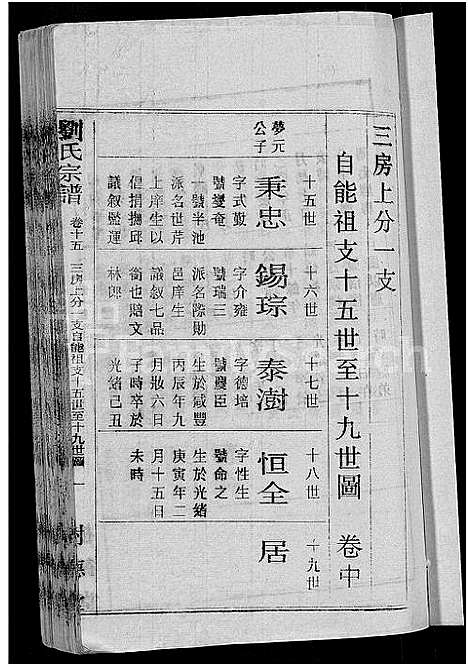 三房上分一支
自能祖支十五世至十九世圖 卷中
十五世
十六世
十七世
十八世
十九世
夢元
公子
秉忠
錫琮
泰澍
恒全
居
字式
號夔
一號半池
派名世芹
上庠生以
倡捐撫邱
議敘監運
字介雍
號瑞三
派名際勛
邑庠生
議敘七品
銜也貽文
林郎
字德培
號農臣
生於咸豐
丙辰年九
月六日
子時卒於
光緒己丑
字性生
號命之
生於光緒
庚寅年二
月十五日
未時
劉氏宗譜 卷十五 三房上分一支自能祖支十五世至十九世圖 一